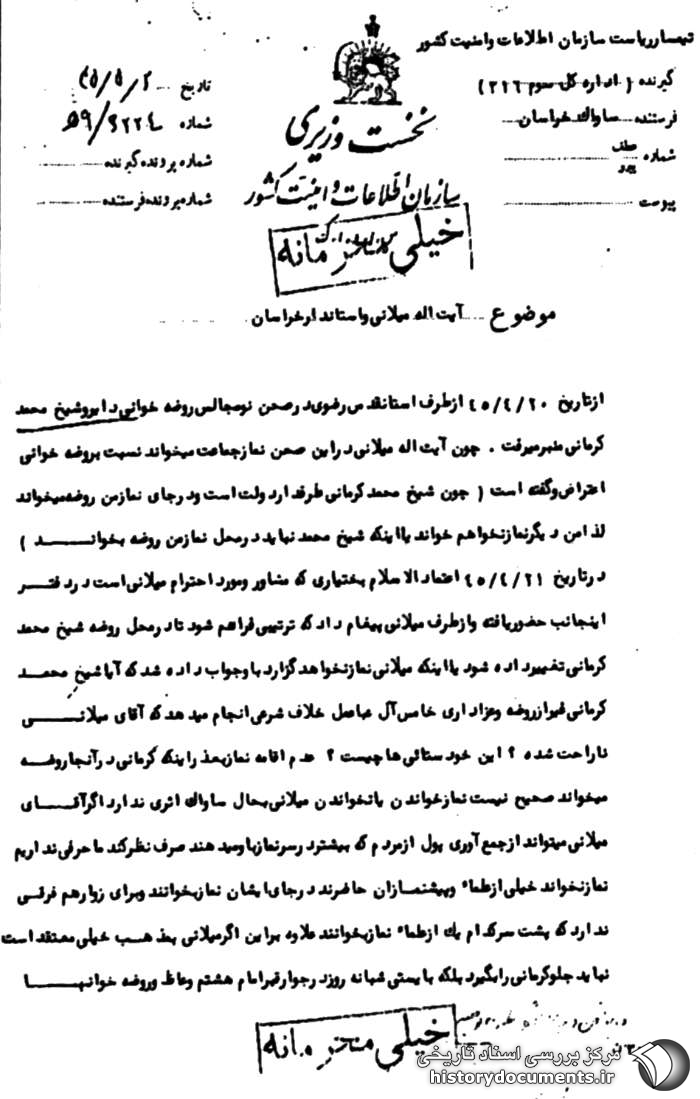 تیمسار ریاست سازمان اطلاعات و امنیت کشور
گیرنده ( اداره کل سوم ۳۱۶ )
فرستنده ساواک خراسان
شماره عطف پیرو
پیوست
نخست وزیری
سازمان اطلاعات و امنیت کشور
تاریخ ۴۵/۵/۲
شماره ۵۹/۹۲۲۴
شماره پرونده گیرنده
شماره پرونده فرستنده
خیلی محرمانه
موضوع آیت اله میلانی و استاندار خراسان
ازتاریخ ۴۵/۴/۲۰ ازطرف استانقدس رضوی درصحن نومجالس روضه خوانی دایروشیخ محمد
کرمانی منبرمیرفت . چون آیت اله میلانی دراین صحن نمازجماعت میخواند نسبت بروضه خوانی
اعتراض وگفته است ( چون شیخ محمد کرمانی طرفدار دولت است ودرجای نمازمن روضه میخواند
لذا من دیگرنمازنخواهم خواند یااینکه شیخ محمد نباید درمحل نمازمن روضه بخواند )
درتاریخ ۴۵/۴/۲۱ اعتمادالاسلام بختیاری که مشاور ومورد احترام میلانی است دردفتر
اینجانب حضوریافته وازطرف میلانی پیغام داد که ترتیبی فراهم شود تادرمحل روضه شیخ محمد
کرمانی تغییرداده شود یااینکه میلانی نمازنخواهد گزارد باوجواب داده شد که آیا شیخ محمد
کرمانی غیرازروضه وعزاداری خامس آل عباعمل خلاف شرعی انجام میدهد که آقای میلانی
ناراحت شده ؟ این خودستائی ها چیست ؟ عدم اقامه نمازبعذر اینکه کرمانی درآنجاروضه
میخواند صحیح نیست نمازخواندن یانخواندن میلانی بحال ساواک اثری ندارد اگرآقای
میلانی میتواند ازجمع آوری پول ازمردم که بیشتردرسرنمازباومیدهند صرف نظرکند ما حرفی نداریم
نمازنخواند خیلی ازعلماء وپیشنمازان حاضرند درجای ایشان نمازبخوانند وبرای زوارهم فرقی
ندارد که پشت سرکدام یک ازعلماء نمازبخوانند علاوه براین اگرمیلانی بمذهب خیلی معتقد است
نباید جلوکرمانی رابگیرد بلکه بایستی شبانه روزدرجوارقبرامام هشتم وعاظ وروضه خوانها
خیلی محرمانه
مرکز بررسی اسناد تاریخی
historydocuments.ir